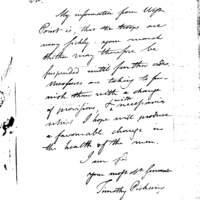 My information from West
Point is, that the troops are
very sickly. your march
thither may therefore be
suspended until further order.
Measures are taking to fur-
nish them with a change
of provisions, & necessaries
with
which I hope will produce
a favorable change in
the health of the men.
I am Sir
your most obt. servant
Timothy Pickering